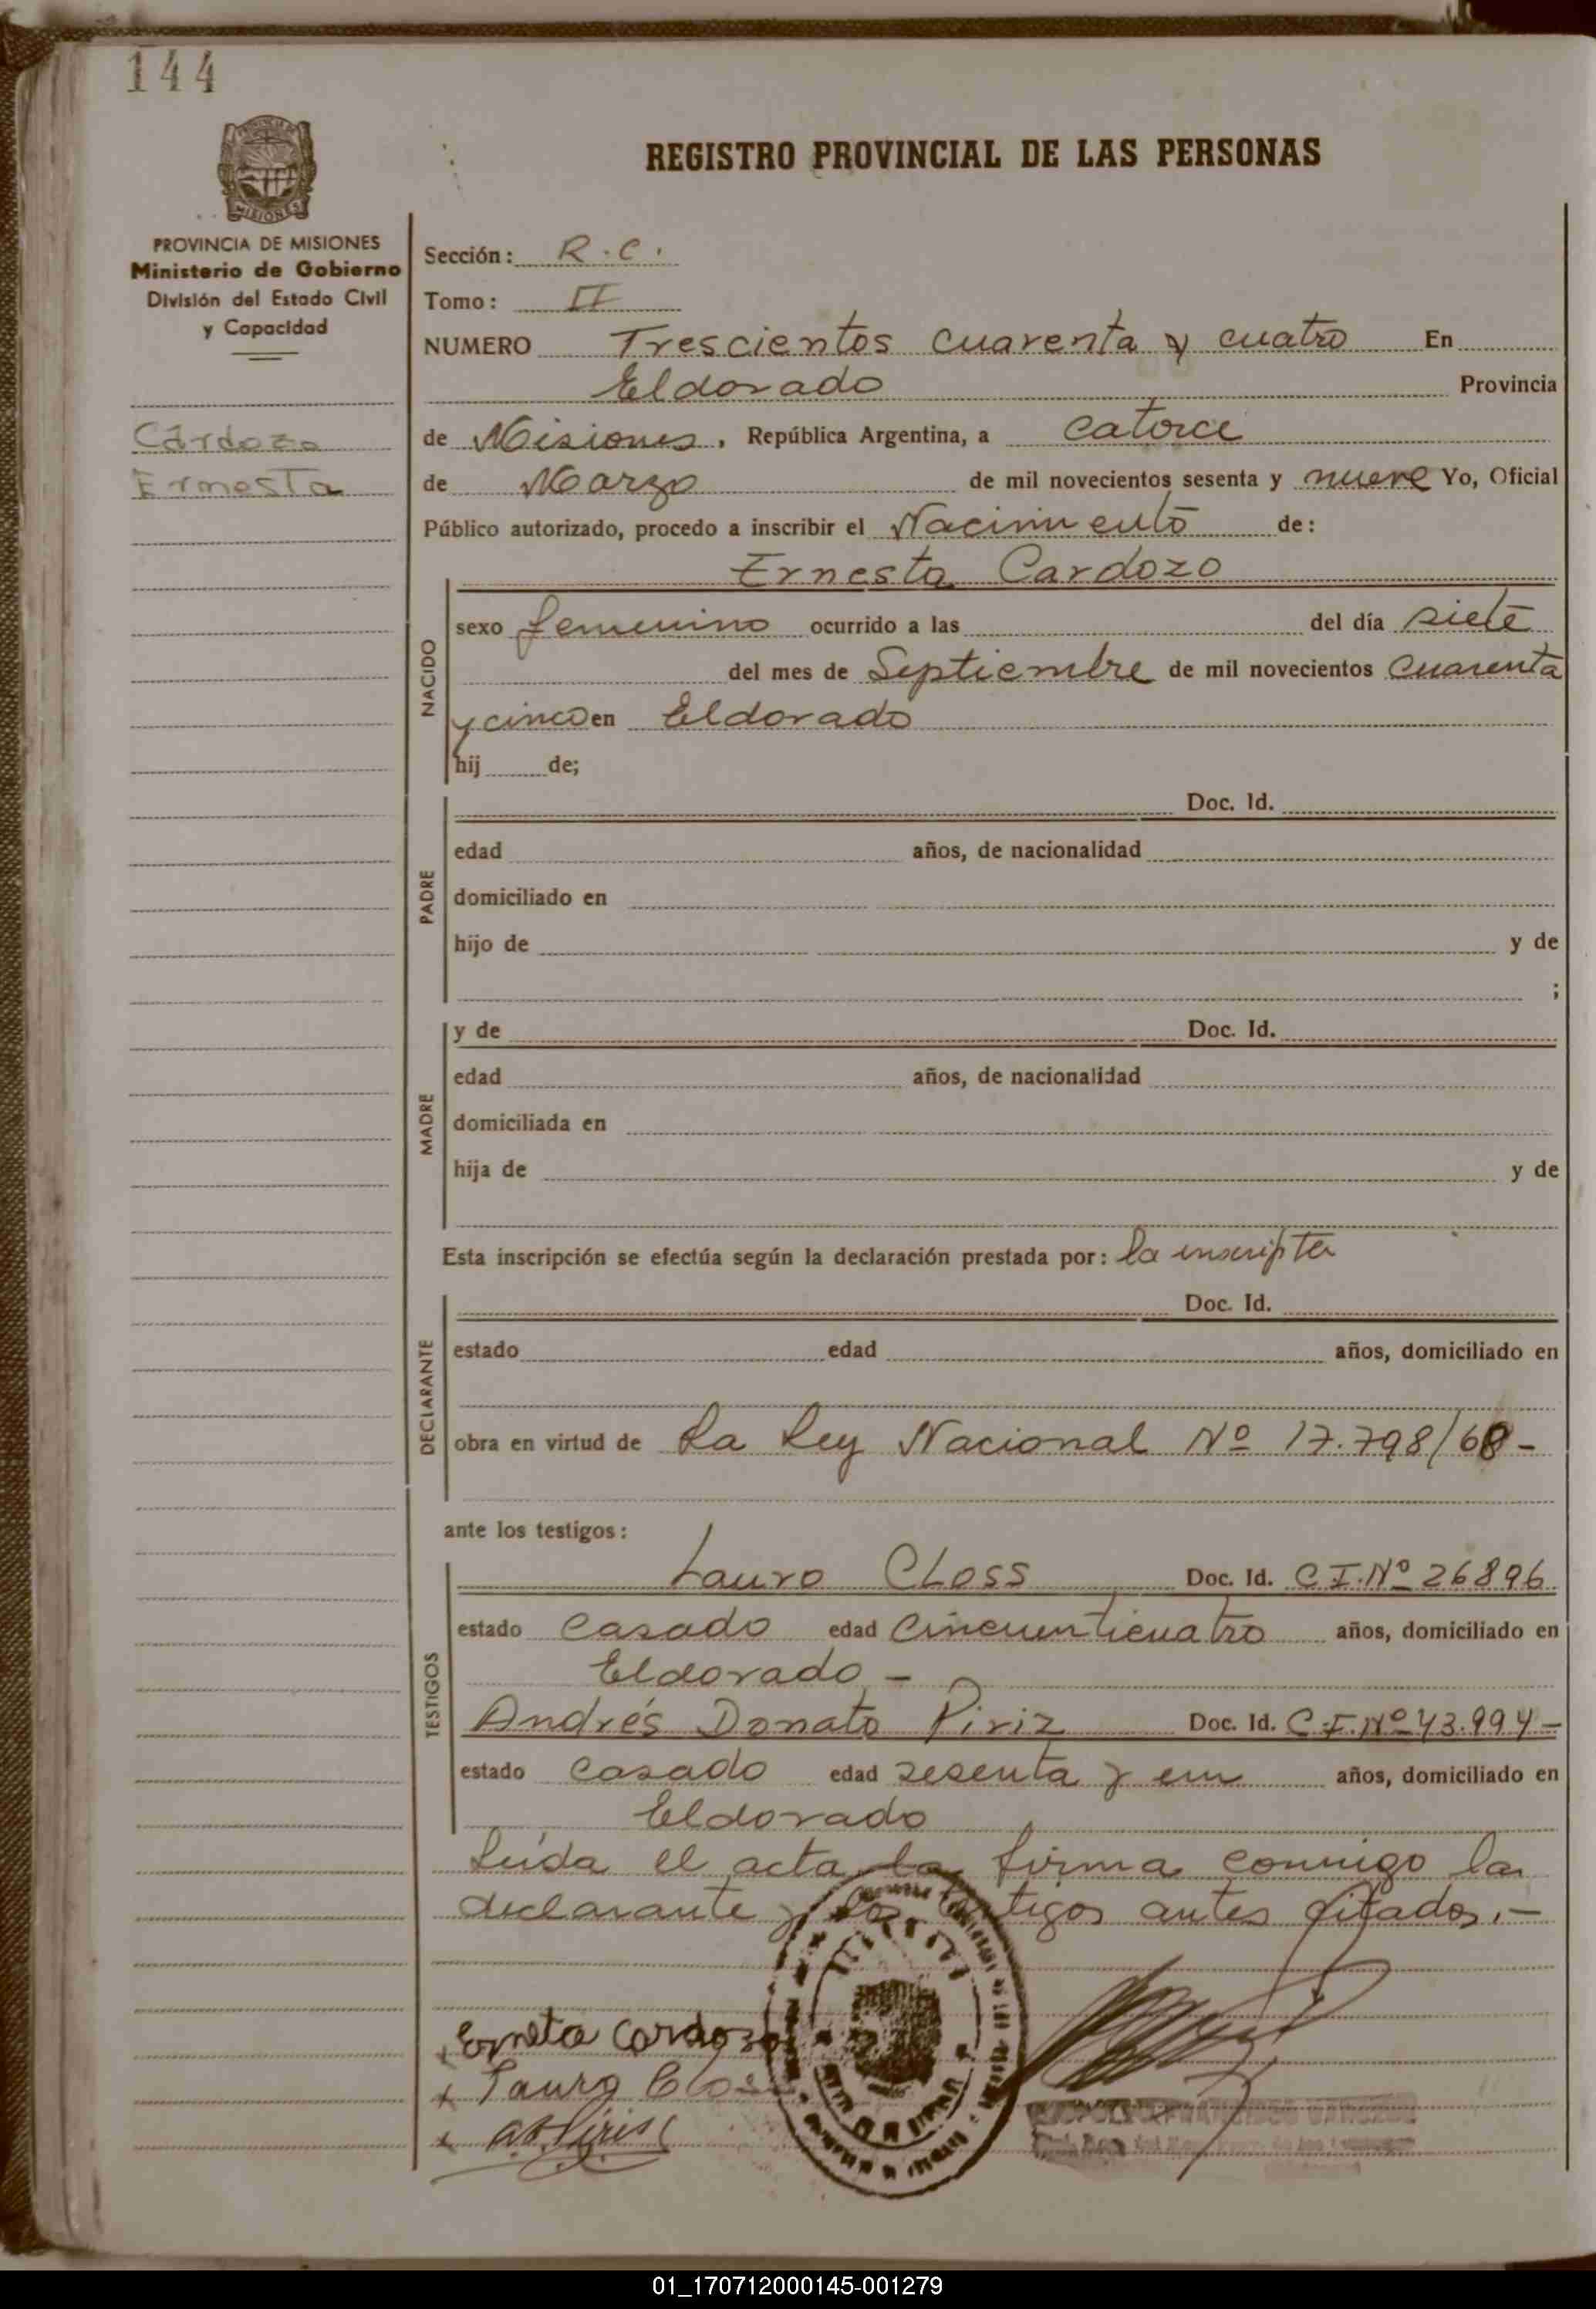 144
REGISTRO PROVINCIAL DE LAS PERSONAS
MISIONES
PROVINCIA DE MISIONES
Ministerio de Gobierno
División del Estado Civil
y Capacidad
Cardozo
Ernesta
Sección: R.C.
Tomo: II
NUMERO Trescientos cuarenta y cuatro En
Eldorado Provincia
de Misiones, República Argentina, a catorce
de Marzo de mil novecientos sesenta y nueve Yo, Oficial
Público autorizado, procedo a inscribir el Nacimiento de:
Ernesta Cardozo
NACIDO
sexo femenino ocurrido a las del día siete
del mes de Septiembre de mil novecientos cuarenta
y cinco en Eldorado
hij de;
PADRE
Doc. Id.
edad años, de nacionalidad
domiciliado en
hijo de y de
;
MADRE
y de Doc. Id.
edad años, de nacionalidad
domiciliada en
hija de y de
Esta inscripción se efectúa según la declaración prestada por: la inscripta
DECLARANTE
Doc. Id.
estado edad años, domiciliado en
obra en virtud de La Ley Nacional Nº 17.798/68-
ante los testigos:
TESTIGOS
Lauro CLoss Doc. Id. C.I.Nº 26896
estado casado edad cincuenticuatro años, domiciliado en
Eldorado -
Andrés Donato Piriz Doc. Id. C.I.Nº 43.994-
estado casado edad sesenta y un años, domiciliado en
Eldorado
Leída el acta la firma conmigo la
declarante y los testigos antes citados.-
Erneta Cardozo
x Lauro Closs
x
01_170712000145-001279